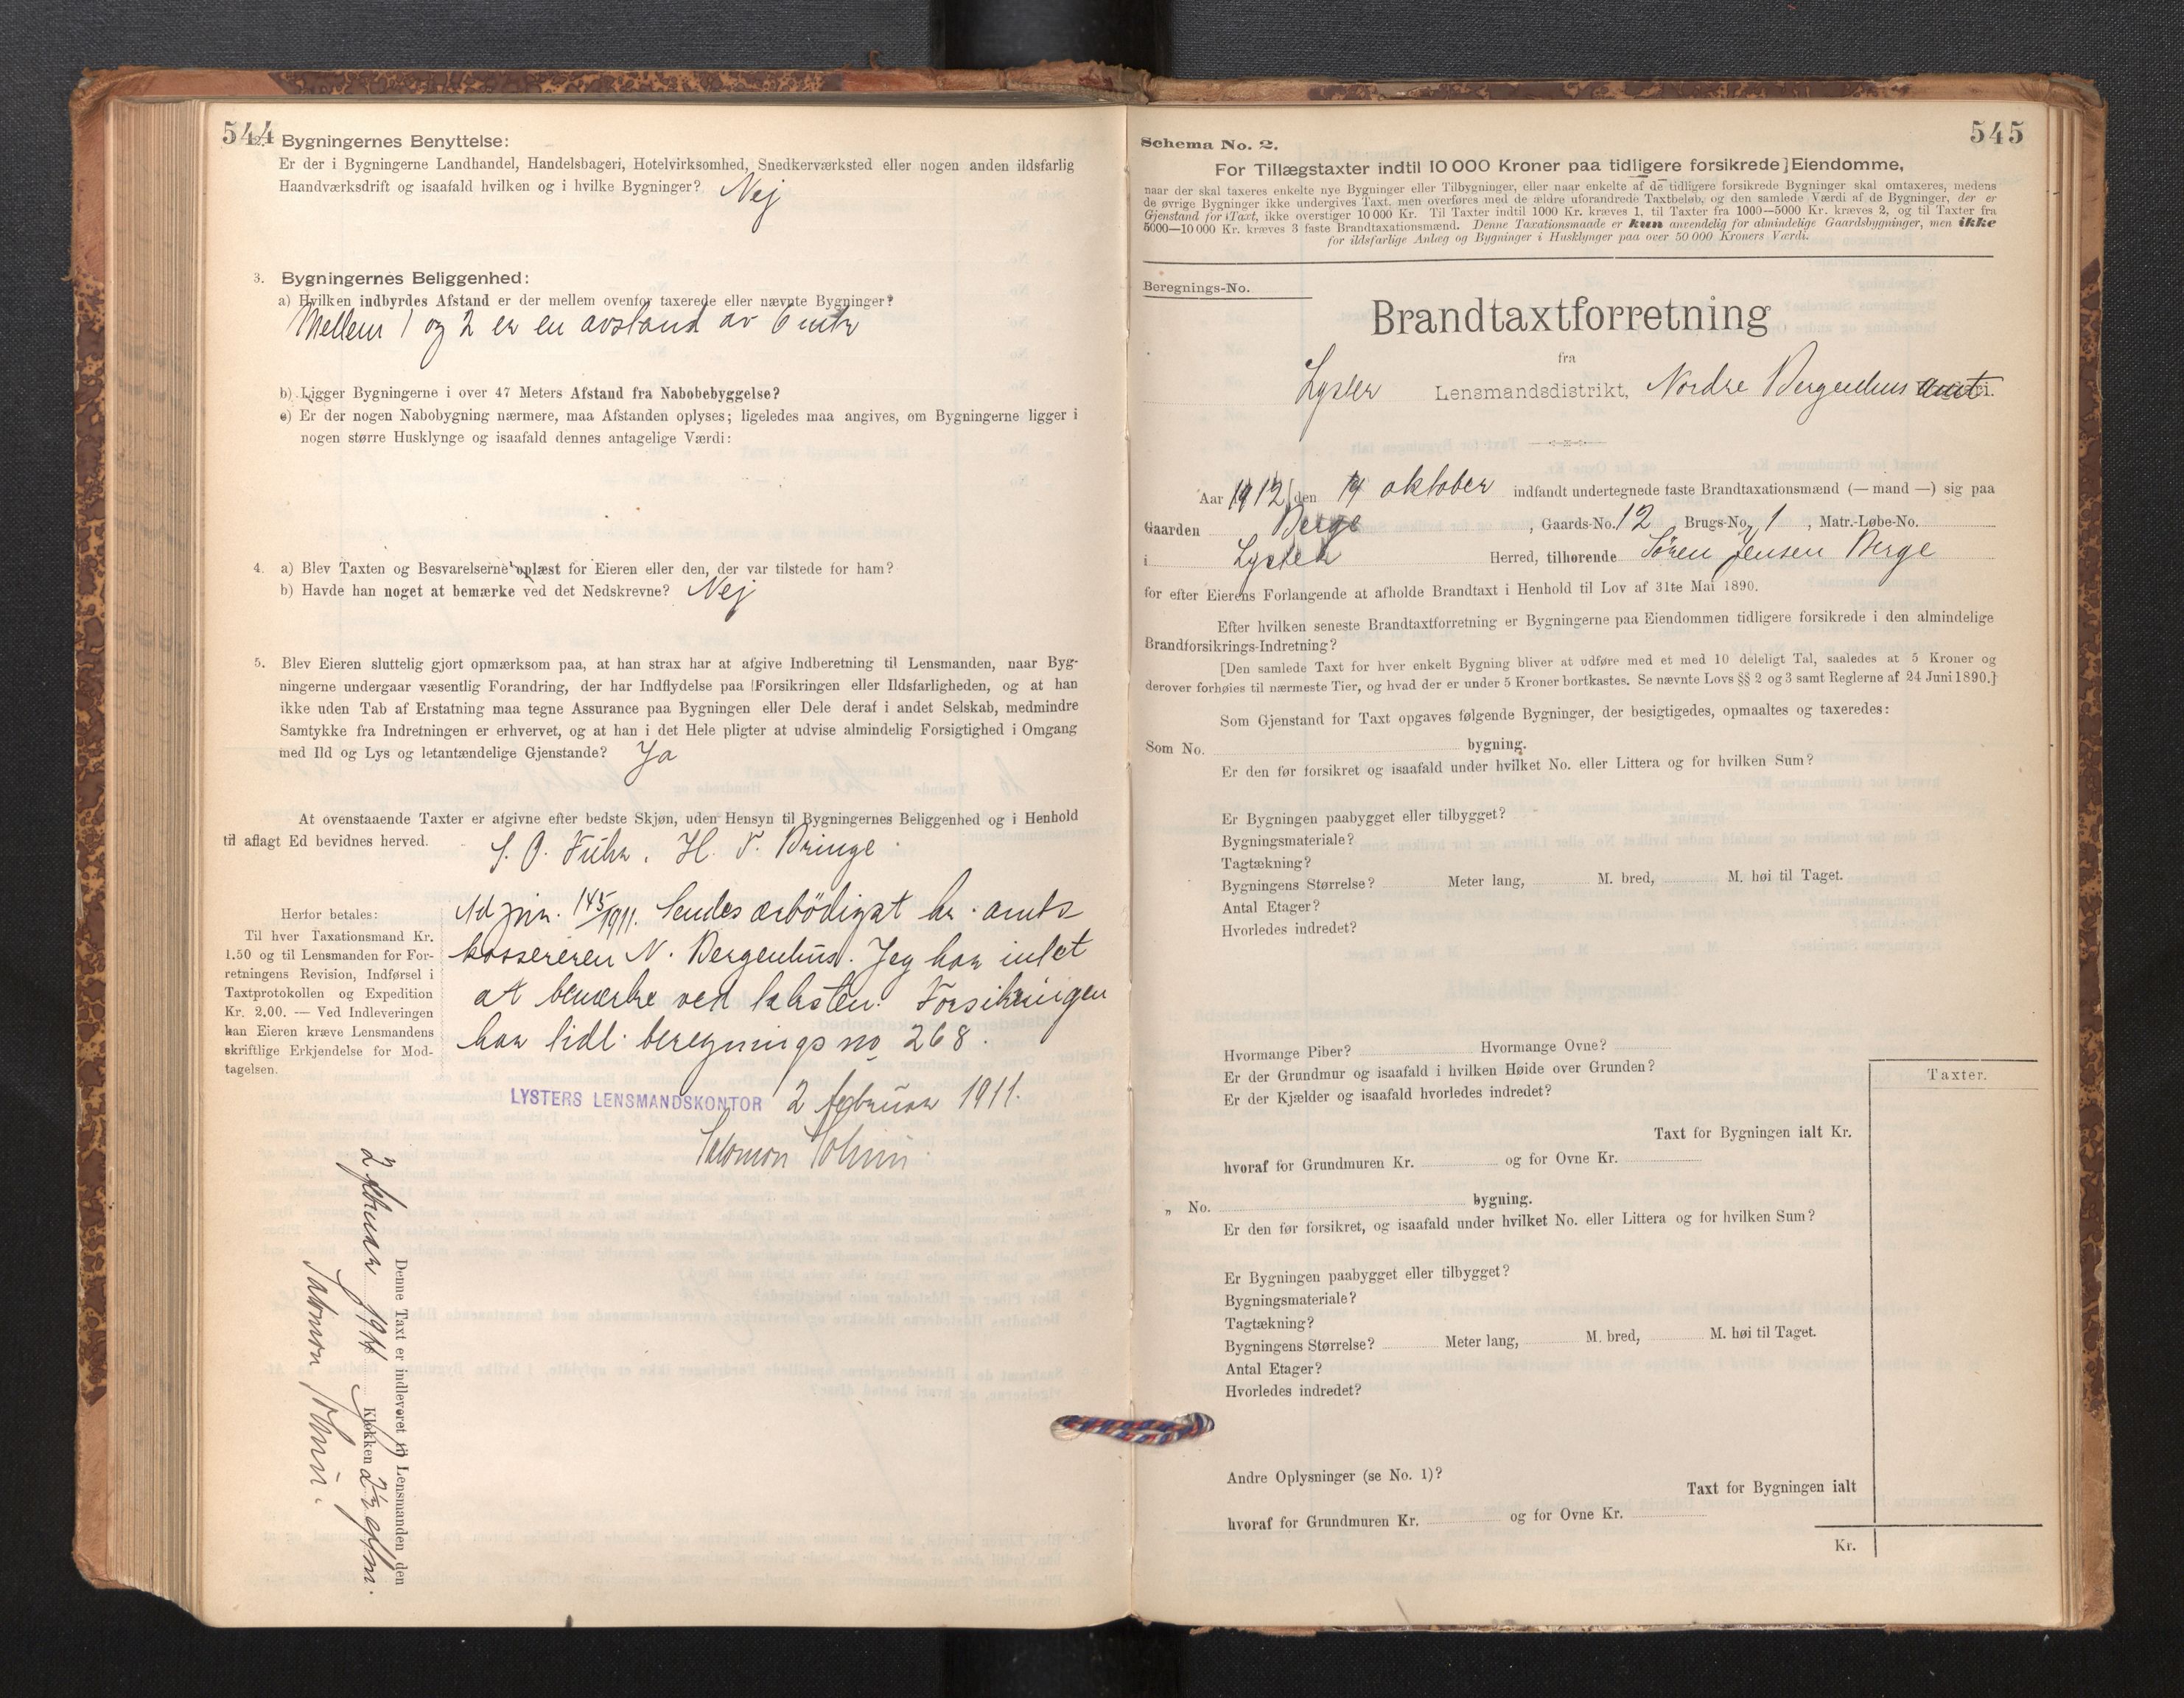 544
2. Bygningernes Benyttelse:
Er der i Bygningerne Landhandel, Handelsbageri, Hotelvirksomhed, Snedkerværksted eller nogen anden ildsfarlig
Haandværksdrift og isaafald hvilken og i hvilke Bygninger? Nej
3. Bygningernes Beliggenhed:
a) Hvilken indbyrdes Afstand er der mellem ovenfor taxerede eller nævnte Bygninger?
Mellem 1 og 2 er en avstand av 6 mtr
b) Ligger Bygningerne i over 47 Meters Afstand fra Nabobebyggelse?
c) Er der nogen Nabobygning nærmere, maa Afstanden oplyses; ligeledes maa angives, om Bygningerne ligger i
nogen større Husklynge og isaafald dennes antagelige Værdi:
4. a) Blev Taxten og Besvarelserne oplæst for Eieren eller den, der var tilstede for ham?
b) Havde han noget at bemærke ved det Nedskrevne? Nej
5. Blev Eieren sluttelig gjort opmærksom paa, at han strax har at afgive Indberetning til Lensmanden, naar Byg-
ningerne undergaar væsentlig Forandring, der har Indflydelse paa Forsikringen eller Ildsfarligheden, og at han
ikke uden Tab af Erstatning maa tegne Assurance paa Bygningen eller Dele deraf i andet Selskab, medmindre
Samtykke fra Indretningen er erhvervet, og at han i det Hele pligter at udvise almindelig Forsigtighed i Omgang
med Ild og Lys og letantændelige Gjenstande? Ja
At ovenstaaende Taxter er afgivne efter bedste Skjøn, uden Hensyn til Bygningernes Beliggenhed og i Henhold
til aflagt Ed bevidnes herved. H. T. Bringe.
Herfor betales:
Til hver Taxationsmand Kr.
1.50 og til Lensmanden for For-
retningens Revision, Indførsel i
Taxtprotokollen og Expedition
Kr. 2.00. — Ved Indleveringen
kan Eieren kræve Lensmandens
skriftlige Erkjendelse for Mod-
tagelsen.
145/1911. Sendes ærbödigst hr. amts
kassereren N. Bergenhus. Jeg har intet
at bemærke ved taksten. Forsikringen
har tidl. beregnings no 268.
LYSTERS LENSMANDSKONTOR 2 februar 1911.
Salomon
Denne Taxt er indleveret til Lensmanden den
2 februar 1911 Klokken 2 1/2 eftm.
Salomon
545
Schema No. 2.
For Tillægstaxter indtil 10 000 Kroner paa tidligere forsikrede] Eiendomme,
naar der skal taxeres enkelte nye Bygninger eller Tilbygninger, eller naar enkelte af de tidligere forsikrede Bygninger skal omtaxeres, medens
de øvrige Bygninger ikke undergives Taxt, men overføres med de ældre uforandrede Taxtbeløb, og den samlede Værdi af de Bygninger, der er
Gjenstand for Taxt, ikke overstiger 10 000 Kr. Til Taxter indtil 1000 Kr. kræves 1, til Taxter fra 1000—5000 Kr. kræves 2, og til Taxter fra
5000—10 000 Kr. kræves 3 faste Brandtaxationsmænd. Denne Taxationsmaade er kun anvendelig for almindelige Gaardsbygninger, men ikke
for ildsfarlige Anlæg og Bygninger i Husklynger paa over 50 000 Kroners Værdi.
Beregnings-No.
Brandtaxtforretning
fra
Lyster Lensmandsdistrikt, Nordre Bergenhus amt
Aar 1912 den 14 oktober indfandt undertegnede faste Brandtaxationsmænd (— mand —) sig paa
Gaarden Berge, Gaards-No. 12 Brugs-No. 1, Matr.-Løbe-No.
i Lyster Herred, tilhørende Sören Jensen Berge
for efter Eierens Forlangende at afholde Brandtaxt i Henhold til Lov af 31te Mai 1890.
Efter hvilken seneste Brandtaxtforretning er Bygningerne paa Eiendommen tidligere forsikrede i den almindelige
Brandforsikrings-Indretning?
[Den samlede Taxt for hver enkelt Bygning bliver at udføre med et med 10 deleligt Tal, saaledes at 5 Kroner og
derover forhøies til nærmeste Tier, og hvad der er under 5 Kroner bortkastes. Se nævnte Lovs §§ 2 og 3 samt Reglerne af 24 Juni 1890.]
Som Gjenstand for Taxt opgaves følgende Bygninger, der besigtigedes, opmaaltes og taxeredes:
Som No. bygning.
Er den før forsikret og isaafald under hvilket No. eller Littera og for hvilken Sum?
Er Bygningen paabygget eller tilbygget?
Bygningsmateriale?
Tagtækning?
Bygningens Størrelse? Meter lang, M. bred, M. høi til Taget.
Antal Etager?
Hvorledes indredet?
Hvormange Piber? Hvormange Ovne?
Er der Grundmur og isaafald i hvilken Høide over Grunden?
Er der Kjælder og isaafald hvorledes indredet?
Taxter.
Taxt for Bygningen ialt Kr.
hvoraf for Grundmuren Kr. og for Ovne Kr.
„ No. bygning.
Er den før forsikret, og isaafald under hvilket No. eller Littera og for hvilken Sum?
Er Bygningen paabygget eller tilbygget?
Bygningsmateriale?
Tagtækning?
Bygningens Størrelse? Meter lang, M. bred, M. høi til Taget.
Antal Etager?
Hvorledes indredet?
Andre Oplysninger (se No. 1)?
Taxt for Bygningen ialt
hvoraf for Grundmuren Kr. og for Ovne Kr.
Kr.